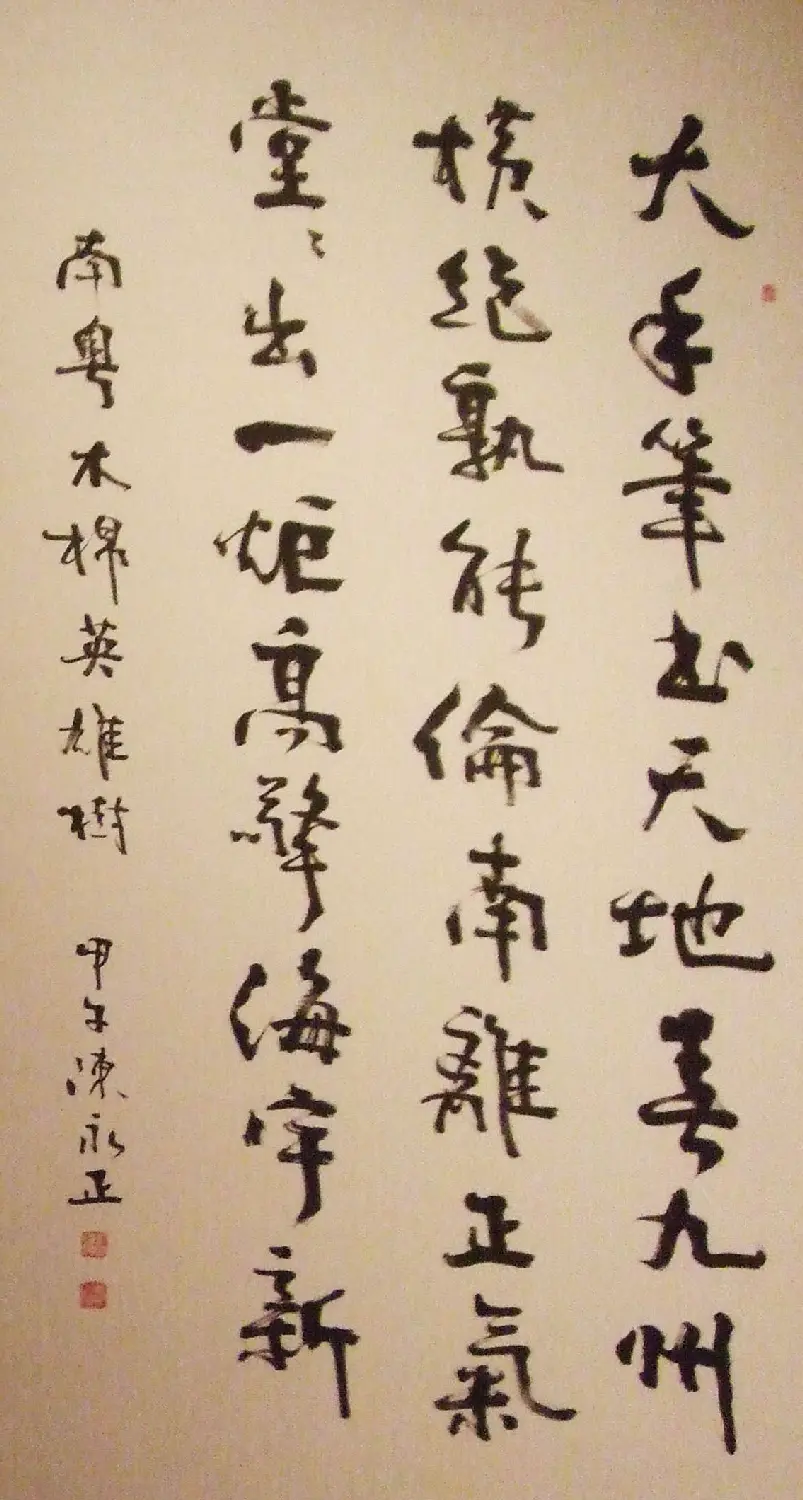 大手筆書天地春九州
橫絕孰能倫南離正氣
堂〻出一炬高擎海宇新
南粵木棉英雄樹
甲午陳永正